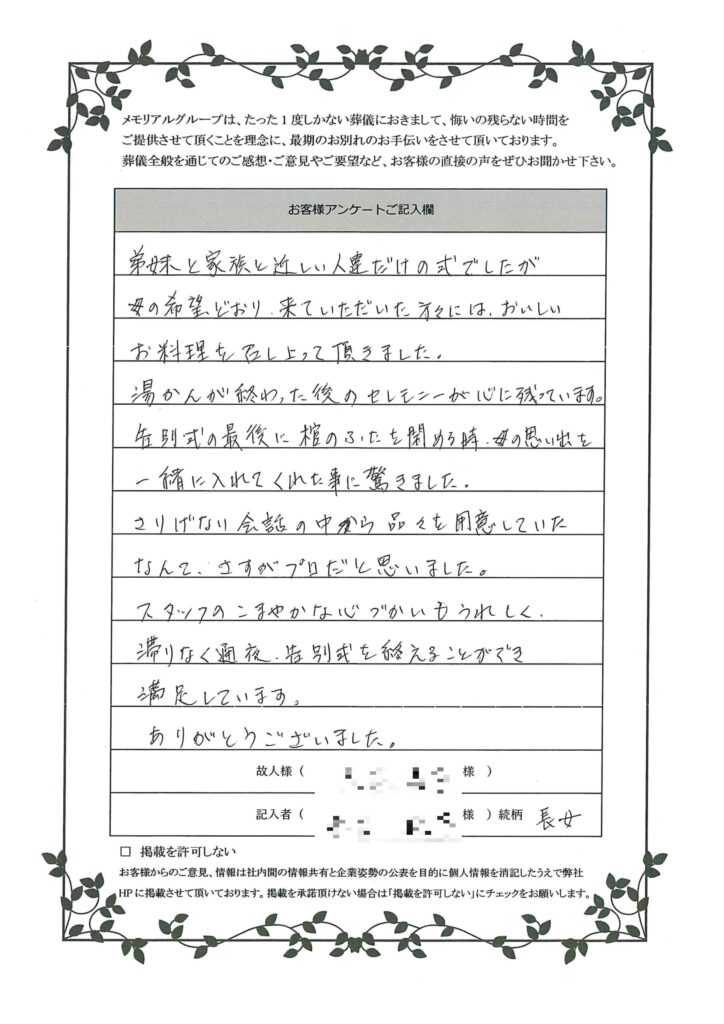 メモリアルグループは、たった1度しかない葬儀におきまして、悔いの残らない時間を
ご提供させて頂くことを理念に、最期のお別れのお手伝いをさせて頂いております。
葬儀全般を通じてのご感想・ご意見やご要望など、お客様の直接の声をぜひお聞かせ下さい。
お客様アンケートご記入欄
弟妹と家族と近しい人達だけの式でしたが
母の希望どおり、来ていただいた方々には、おいしい
お料理を召し上って頂きました。
湯かんが終わった後のセレモニーが心に残っています。
告別式の最後に棺のふたを閉める時、母の思い出を
一緒に入れてくれた事に驚きました。
さりげない会話の中から品々を用意していた
なんて、さすがプロだと思いました。
スタッフのこまやかな心づかいもうれしく、
滞りなく通夜、告別式を終えることができ
満足しています。
ありがとうございました。
故人様（ 様 ）
記入者（ 様 ）続柄 長女
☐ 掲載を許可しない
お客様からのご意見、情報は社内間の情報共有と企業姿勢の公表を目的に個人情報を消記したうえで弊社
HPに掲載させて頂いております。掲載を承諾頂けない場合は「掲載を許可しない」にチェックをお願いします。